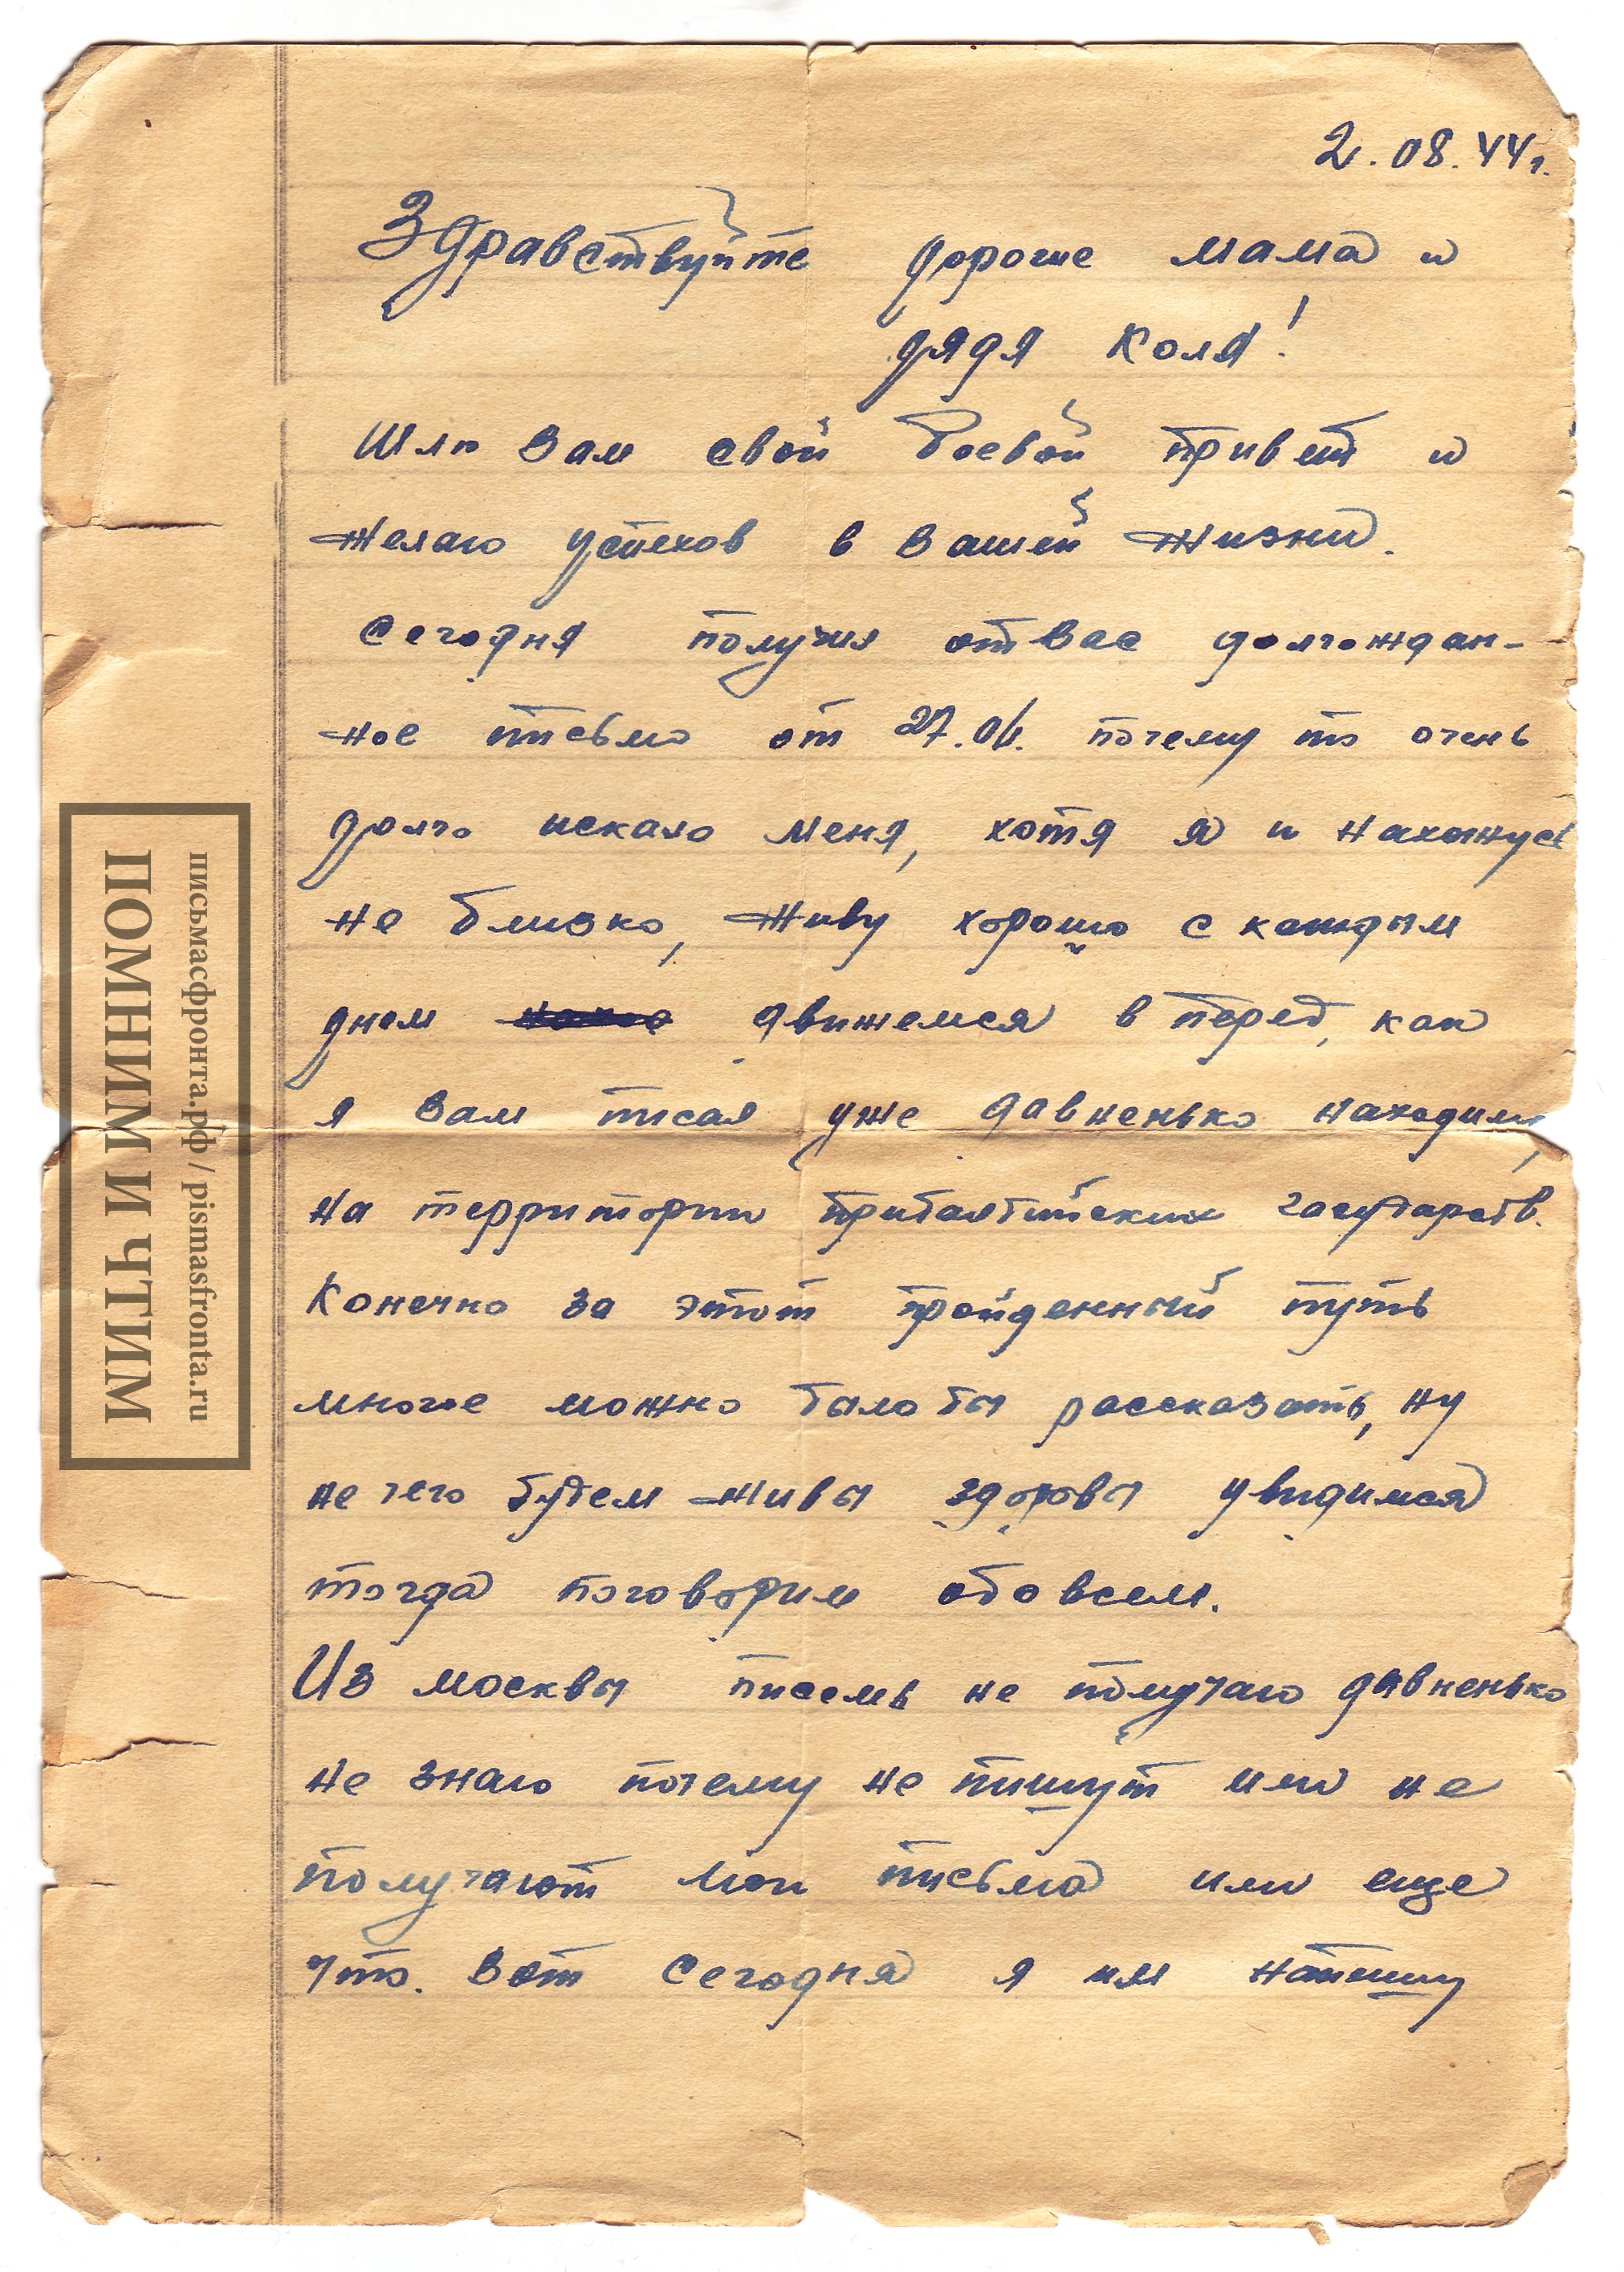 2.08.44г.
Здравствуйте дорогие мама и
дядя Коля!
Шлю Вам свой боевой привет и
желаю успехов в Вашей жизни.
Сегодня получил от Вас долгождан-
ное письмо от 27.06. почему то очень
долго искало меня, хотя я и нахожусь
не близко, живу хорошо с каждым
днем движемся в перед, как
я Вам писал уже давненько находимся
на территории прибалтийских государств.
Конечно за этот пройденный путь
многое можно было бы рассказать, ну
не чего будем живы здоровы увидимся
тогда поговорим обо всем.
Из москвы писемь не получаю давненько
не знаю почему не пишут или не
получают мои письма или еще
что. Вот сегодня я им напишу
письмасфронта.рф / pismasfronta.ru
ПОМНИМ И ЧТИМ